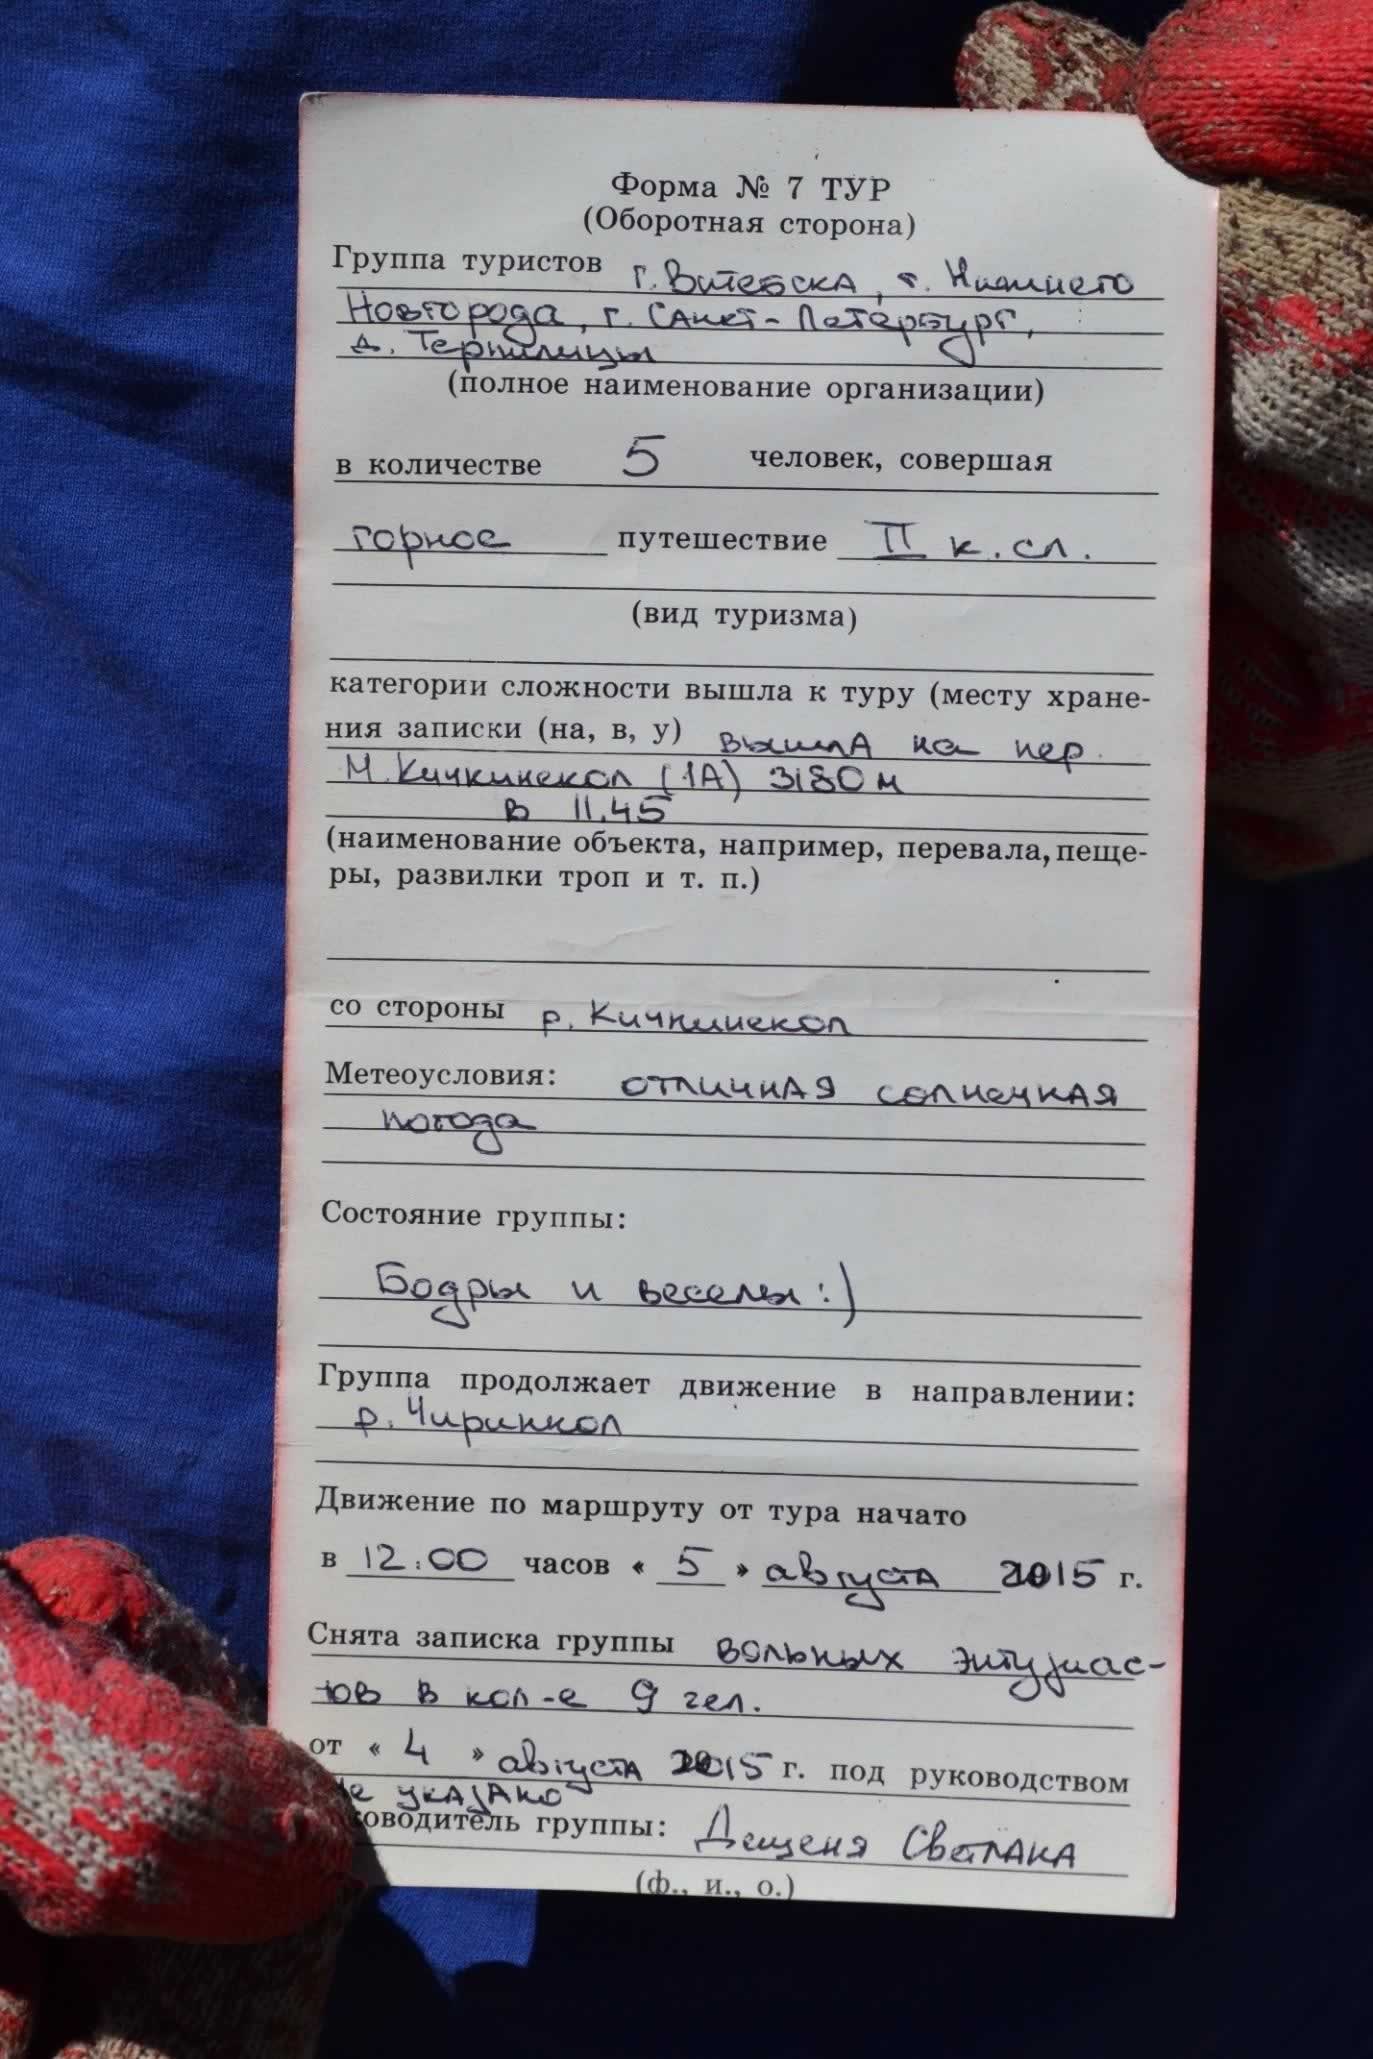 Форма № 7 ТУР
(Оборотная сторона)
Группа туристов г. Витебска, г. Нижнего
Новгорода, г. Санкт-Петербург,
д. Терпилицы
(полное наименование организации)
в количестве 5 человек, совершая
горное путешествие II к. сл.
(вид туризма)
категории сложности вышла к туру (месту хране-
ния записки (на, в, у) вышла на пер.
М. Кичкинекол (1А) 3180 м
в 11.45
(наименование объекта, например, перевала, пеще-
ры, развилки троп и т. п.)
со стороны р. Кичкинекол
Метеоусловия: отличная солнечная
погода
Состояние группы:
Бодры и веселы :)
Группа продолжает движение в направлении:
р. Чиринкол
Движение по маршруту от тура начато
в 12:00 часов « 5 » августа 2015 г.
Снята записка группы вольных энтузиас-
тов в кол-е 9 чел.
от « 4 » августа 2015 г. под руководством
не указано
ководитель группы: Дещеня Светлана
(ф., и., о.)